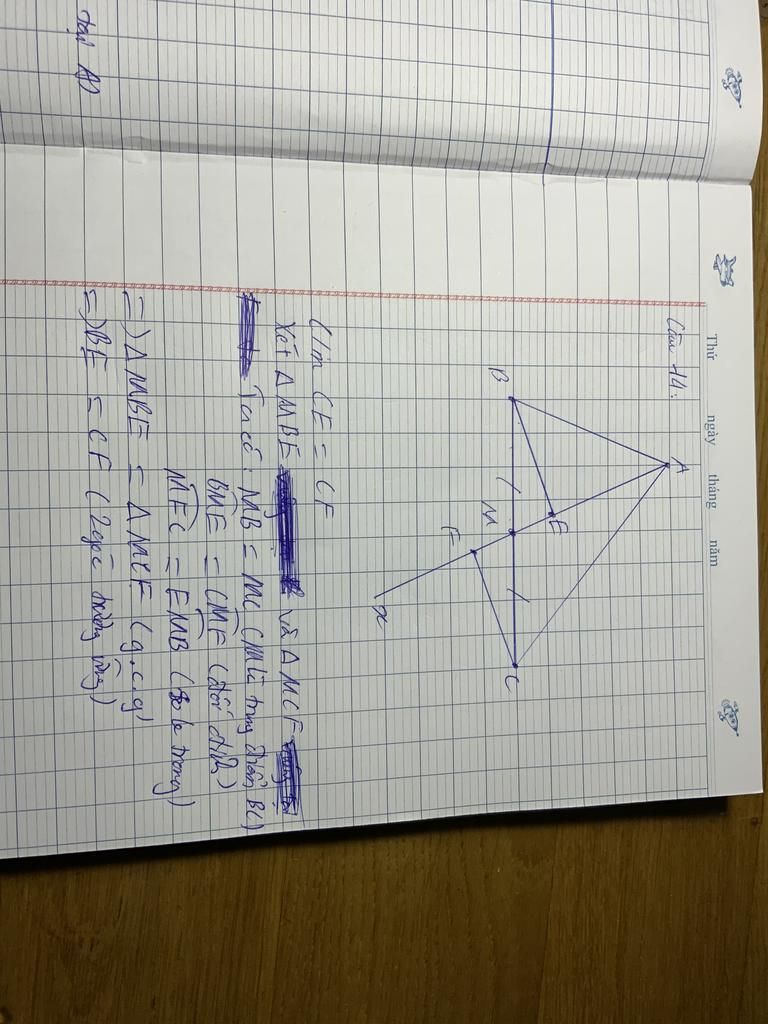 tại A)
Thứ ngày tháng năm
Câu 14.
A
B
E
M
C
F
x
C/m CE = CF
Xét Δ MBE và Δ MCF
Ta có: MB = MC (M là trung điểm BC)
BME = CMF (đối đỉnh)
MEC = EMB (so le trong)
=) Δ MBE = Δ MCF (g.c.g)
=) BE = CF (2 góc tương ứng)